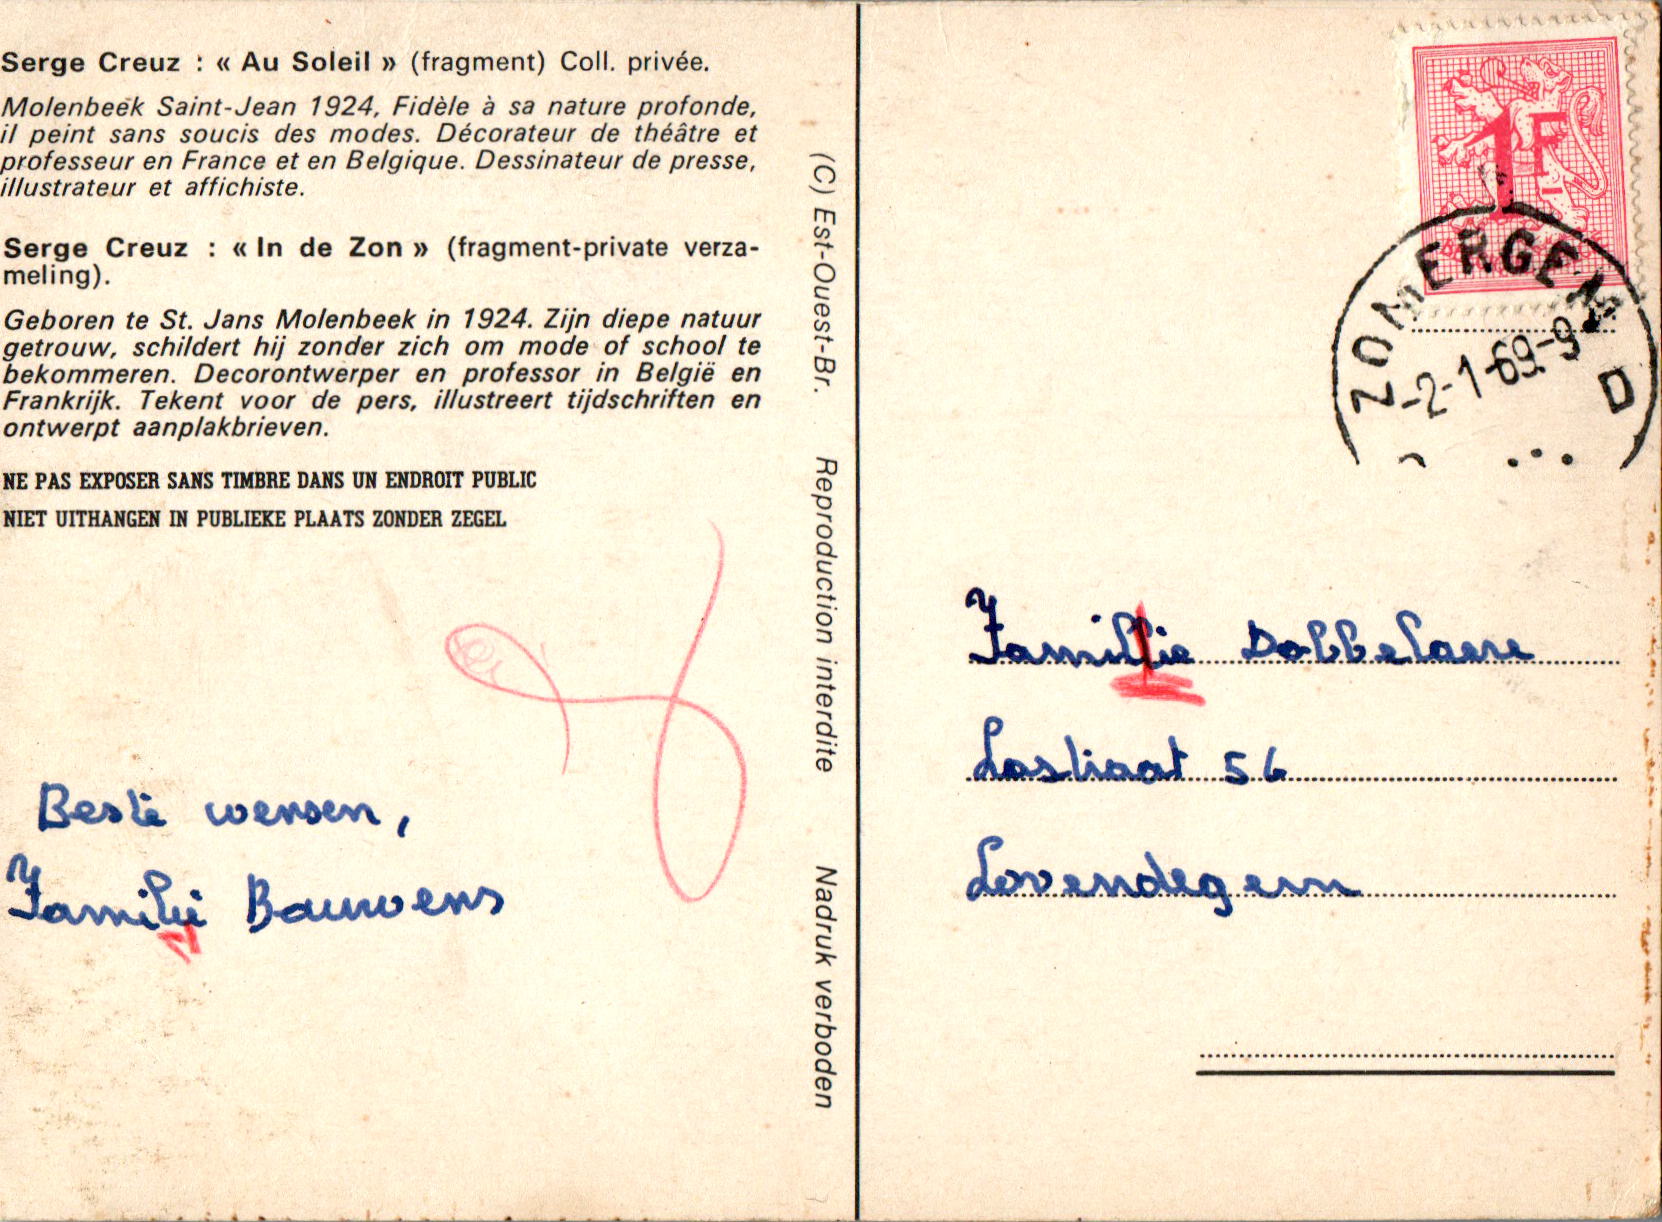 Serge Creuz : « Au Soleil » (fragment) Coll. privée.
Molenbeek Saint-Jean 1924, Fidèle à sa nature profonde,
il peint sans soucis des modes. Décorateur de théâtre et
professeur en France et en Belgique. Dessinateur de presse,
illustrateur et affichiste.
Serge Creuz : « In de Zon » (fragment-private verza-
meling).
Geboren te St. Jans Molenbeek in 1924. Zijn diepe natuur
getrouw, schildert hij zonder zich om mode of school te
bekommeren. Decorontwerper en professor in België en
Frankrijk. Tekent voor de pers, illustreert tijdschriften en
ontwerpt aanplakbrieven.
NE PAS EXPOSER SANS TIMBRE DANS UN ENDROIT PUBLIC
NIET UITHANGEN IN PUBLIEKE PLAATS ZONDER ZEGEL
Beste wensen,
Familie Bauwens
(C) Est-Ouest-Br. Reproduction interdite Nadruk verboden
1F
ZOMERGEM
-2-1-69-9
D
Famillie Dobbelaere
Lostraat 56
Lovendegem